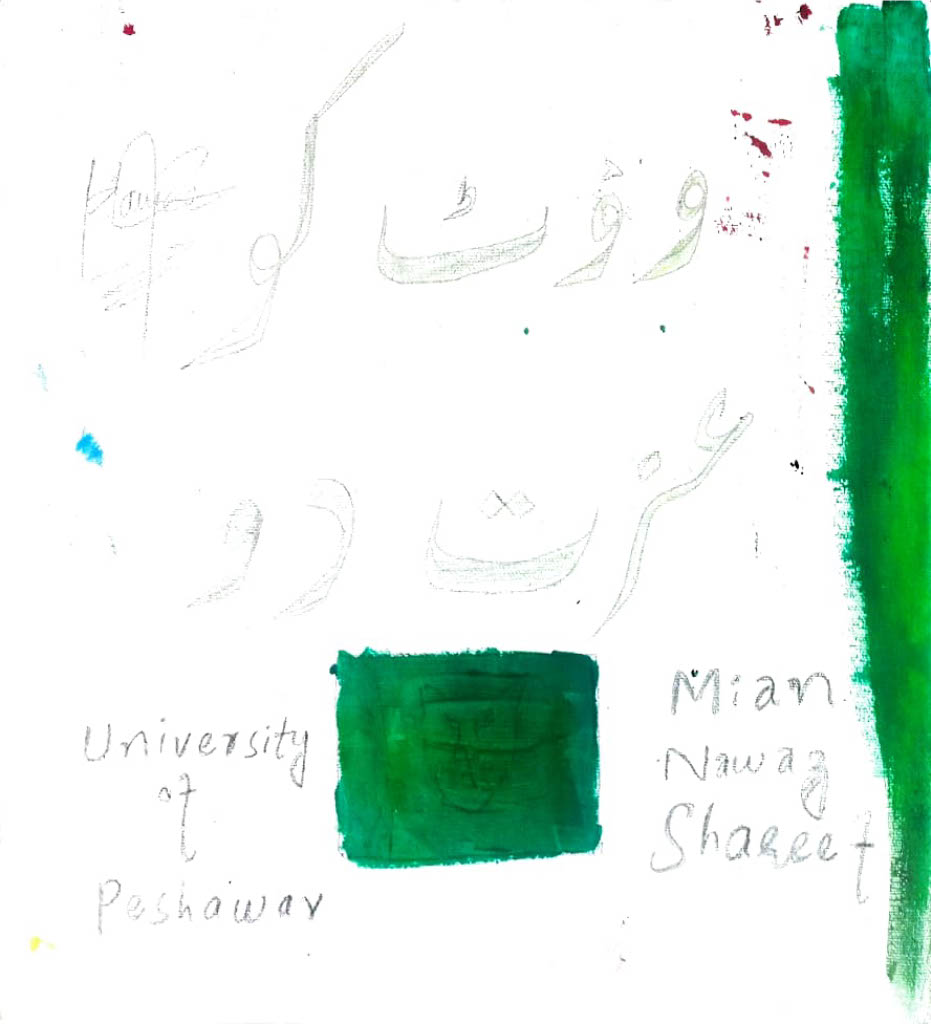 وؤٹ کو
عزت دو
University
of
Peshawar
Mian
Nawaz
Shareef